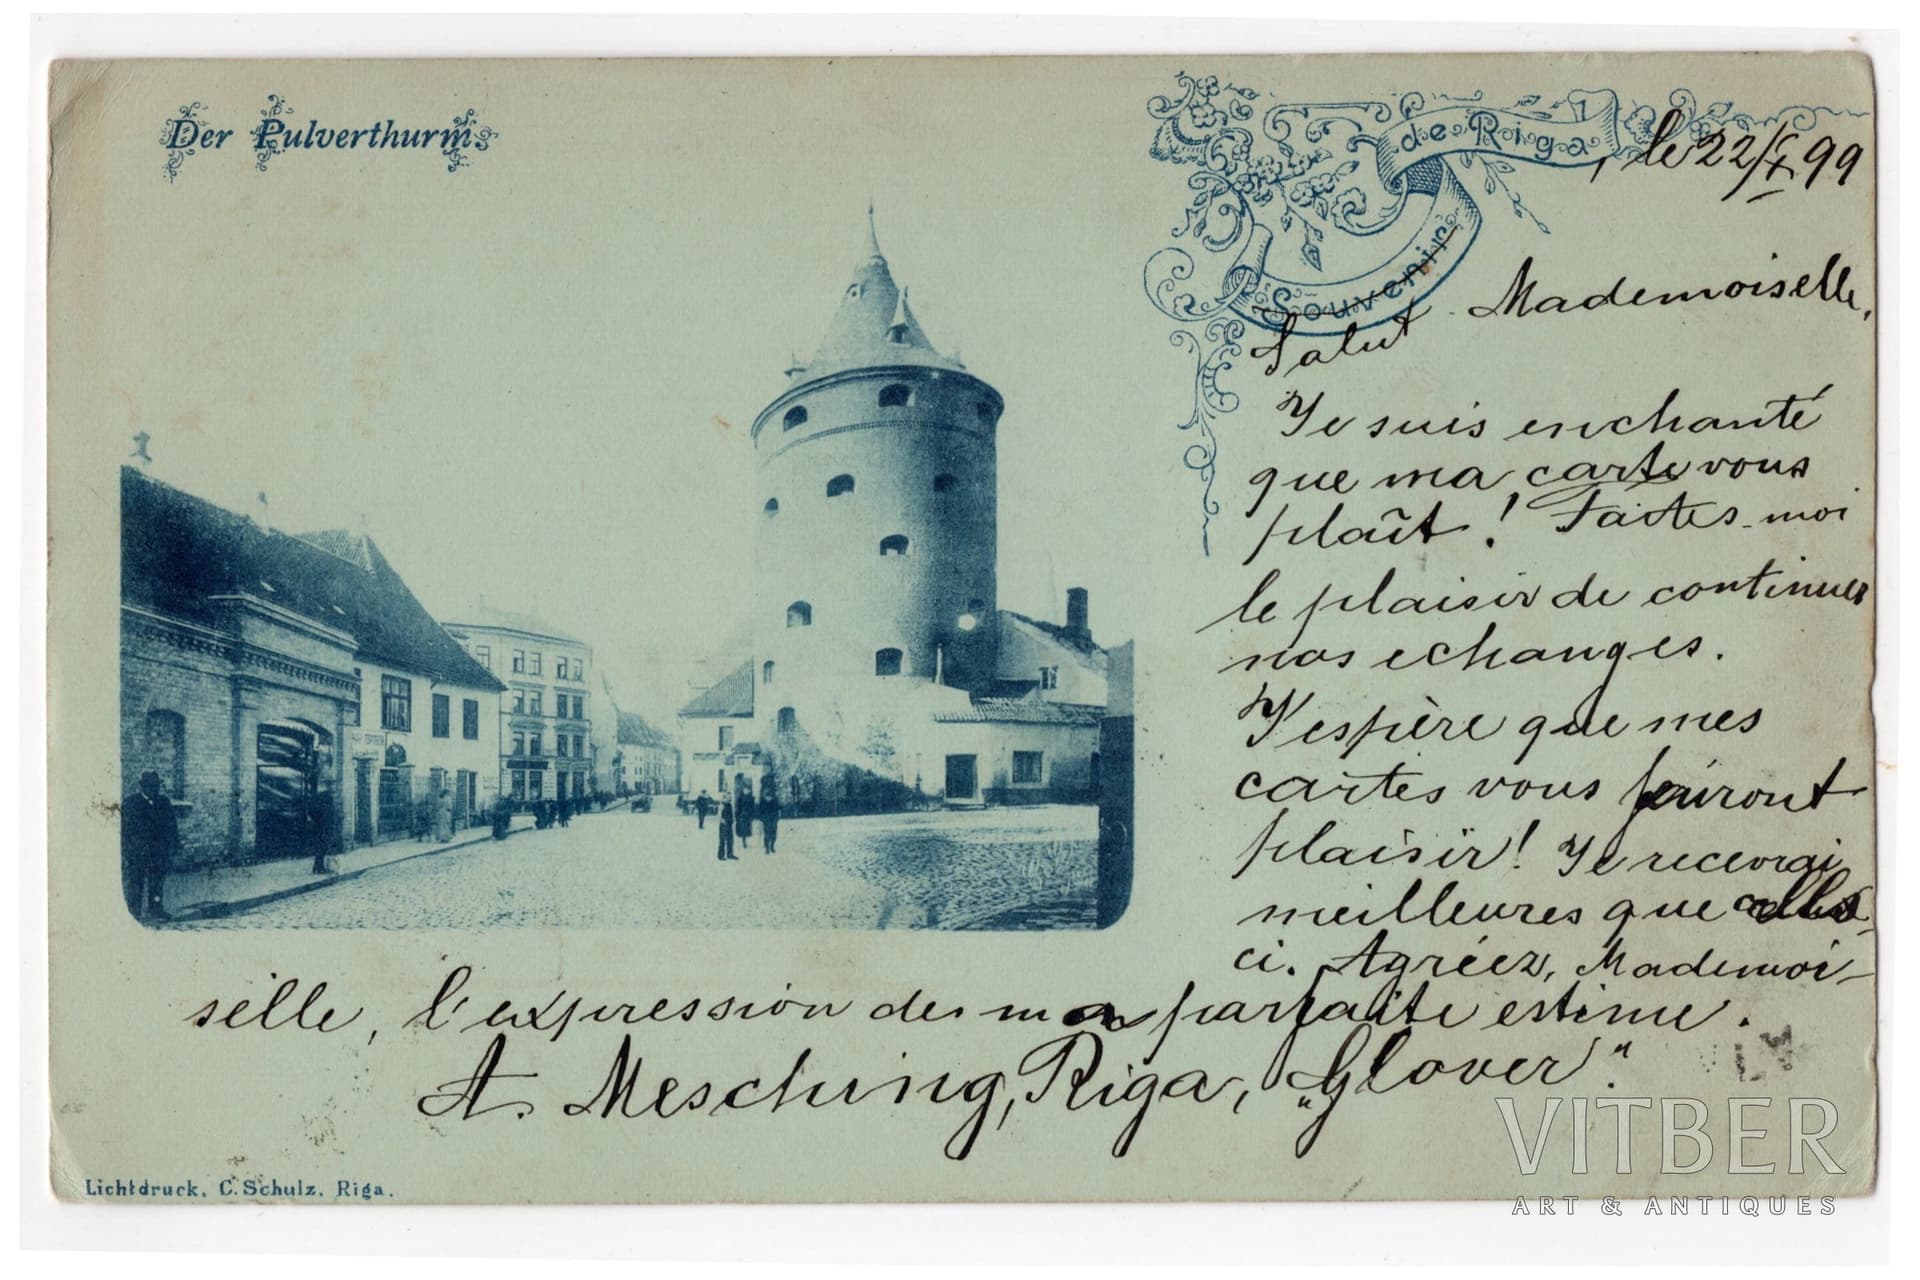 Der Pulverthurm.
Souvenir de Riga
, le 22/X 99
Salut Mademoiselle,
Je suis enchanté
que ma carte vous
plaît! Faites-moi
le plaisir de continuer
nos echanges.
J'espère que mes
cartes vous feuront
plaisir! Je recevrai
meilleures que celles-
ci. Agréez, Mademoi-
selle, l'expression de ma parfaite estime.
A. Mesching, Riga, „Glover".
Lichtdruck, C. Schulz, Riga.
VITBER
ART & ANTIQUES